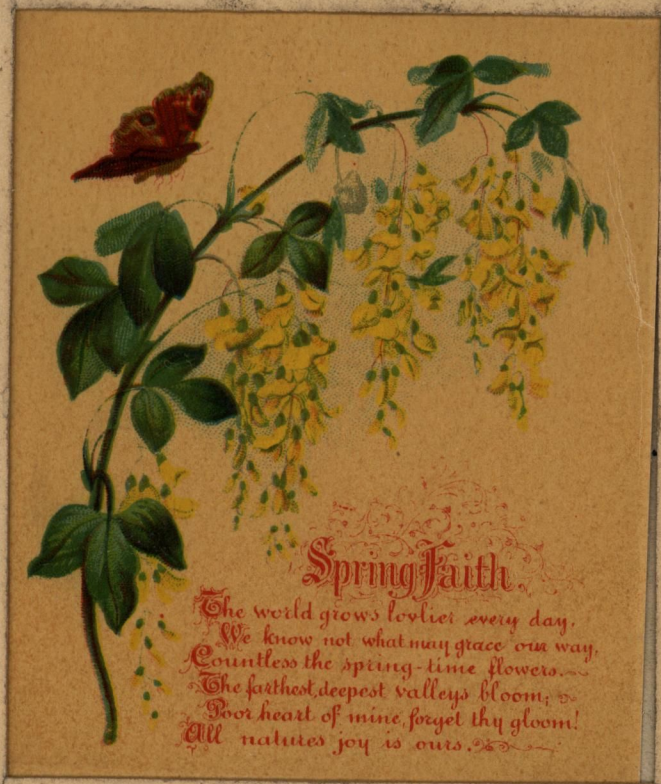 Spring Faith.
The world grows lovlier every day.
We know not what may grace our way,
Countless the spring-time flowers.
The farthest, deepest valleys bloom;
Poor heart of mine, forget thy gloom!
All natures joy is ours.